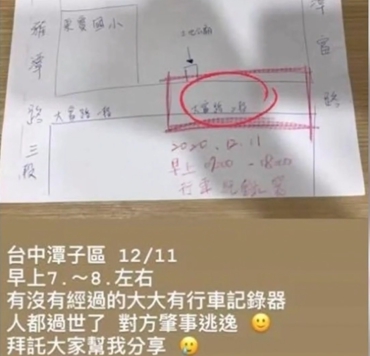 雅潭路三段
東寶國小
土地公廟
潭富路
大富路一段
大富路一段
2020.12.11
早上 07:00 - 08:00
行車紀錄器
台中潭子區 12/11
早上7.～8.左右
有沒有經過的大大有行車記錄器
人都過世了 對方肇事逃逸 🙂
拜託大家幫我分享 🥲